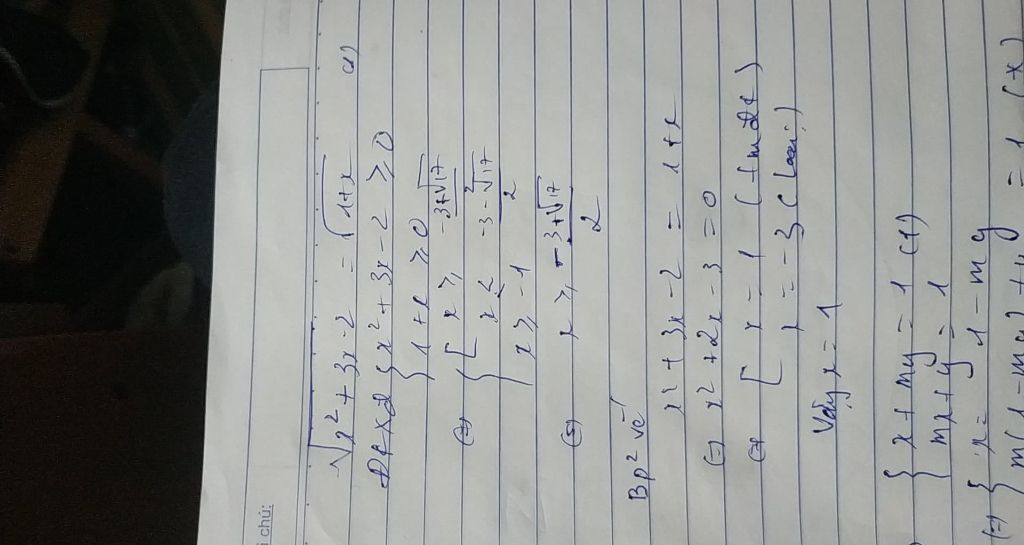 i chú:
√(x² + 3x - 2) = √(1+x) (1)
ĐKXĐ { x² + 3x - 2 ≥ 0
{ 1 + x ≥ 0
(=) { [ x ≥ (-3+√17)/2
x ≤ (-3-√17)/2
x ≥ -1
(=) x ≥ (-3+√17)/2
Bp² vế
x² + 3x - 2 = 1 + x
(=) x² + 2x - 3 = 0
(=) [ x = 1 (tmđk)
x = -3 (loại)
Vậy x = 1
{ x + my = 1 (1)
{ mx + y = 1
(=) { x = 1 - my
{ m(1 - my) + y = 1 (*)